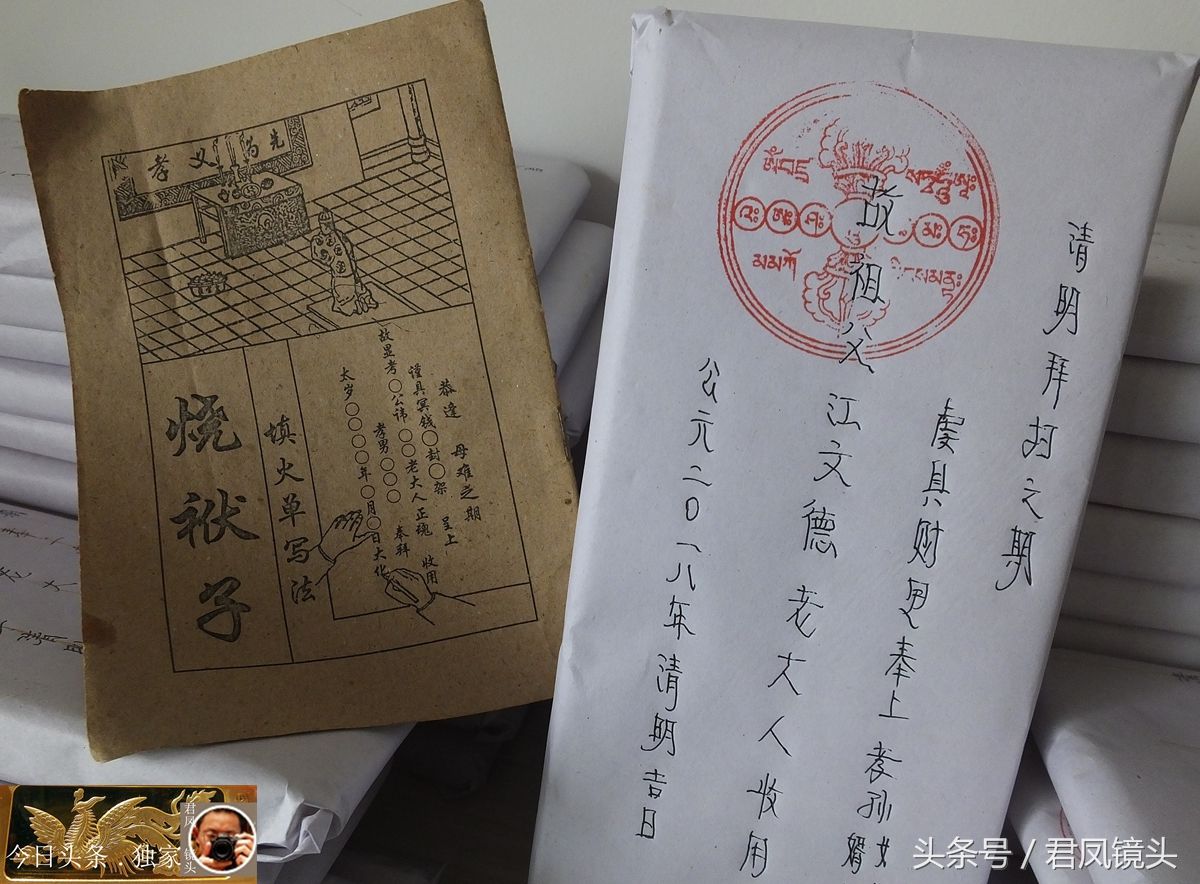 孝义为先
恭逢 母难之期
谨具冥钱〇封〇架 呈上
故显考〇公讳〇〇老大人正魂 收用
孝男〇〇〇 奉拜
太岁〇〇〇〇年〇月〇日大化
填火单写法
烧袱子
清明拜扫之期
虔具财 奉上 孝孙 女婿
故祖父江文德老大人收用
公元二0一八年清明吉日
今日头条 独家
君凤镜头
头条号 / 君凤镜头